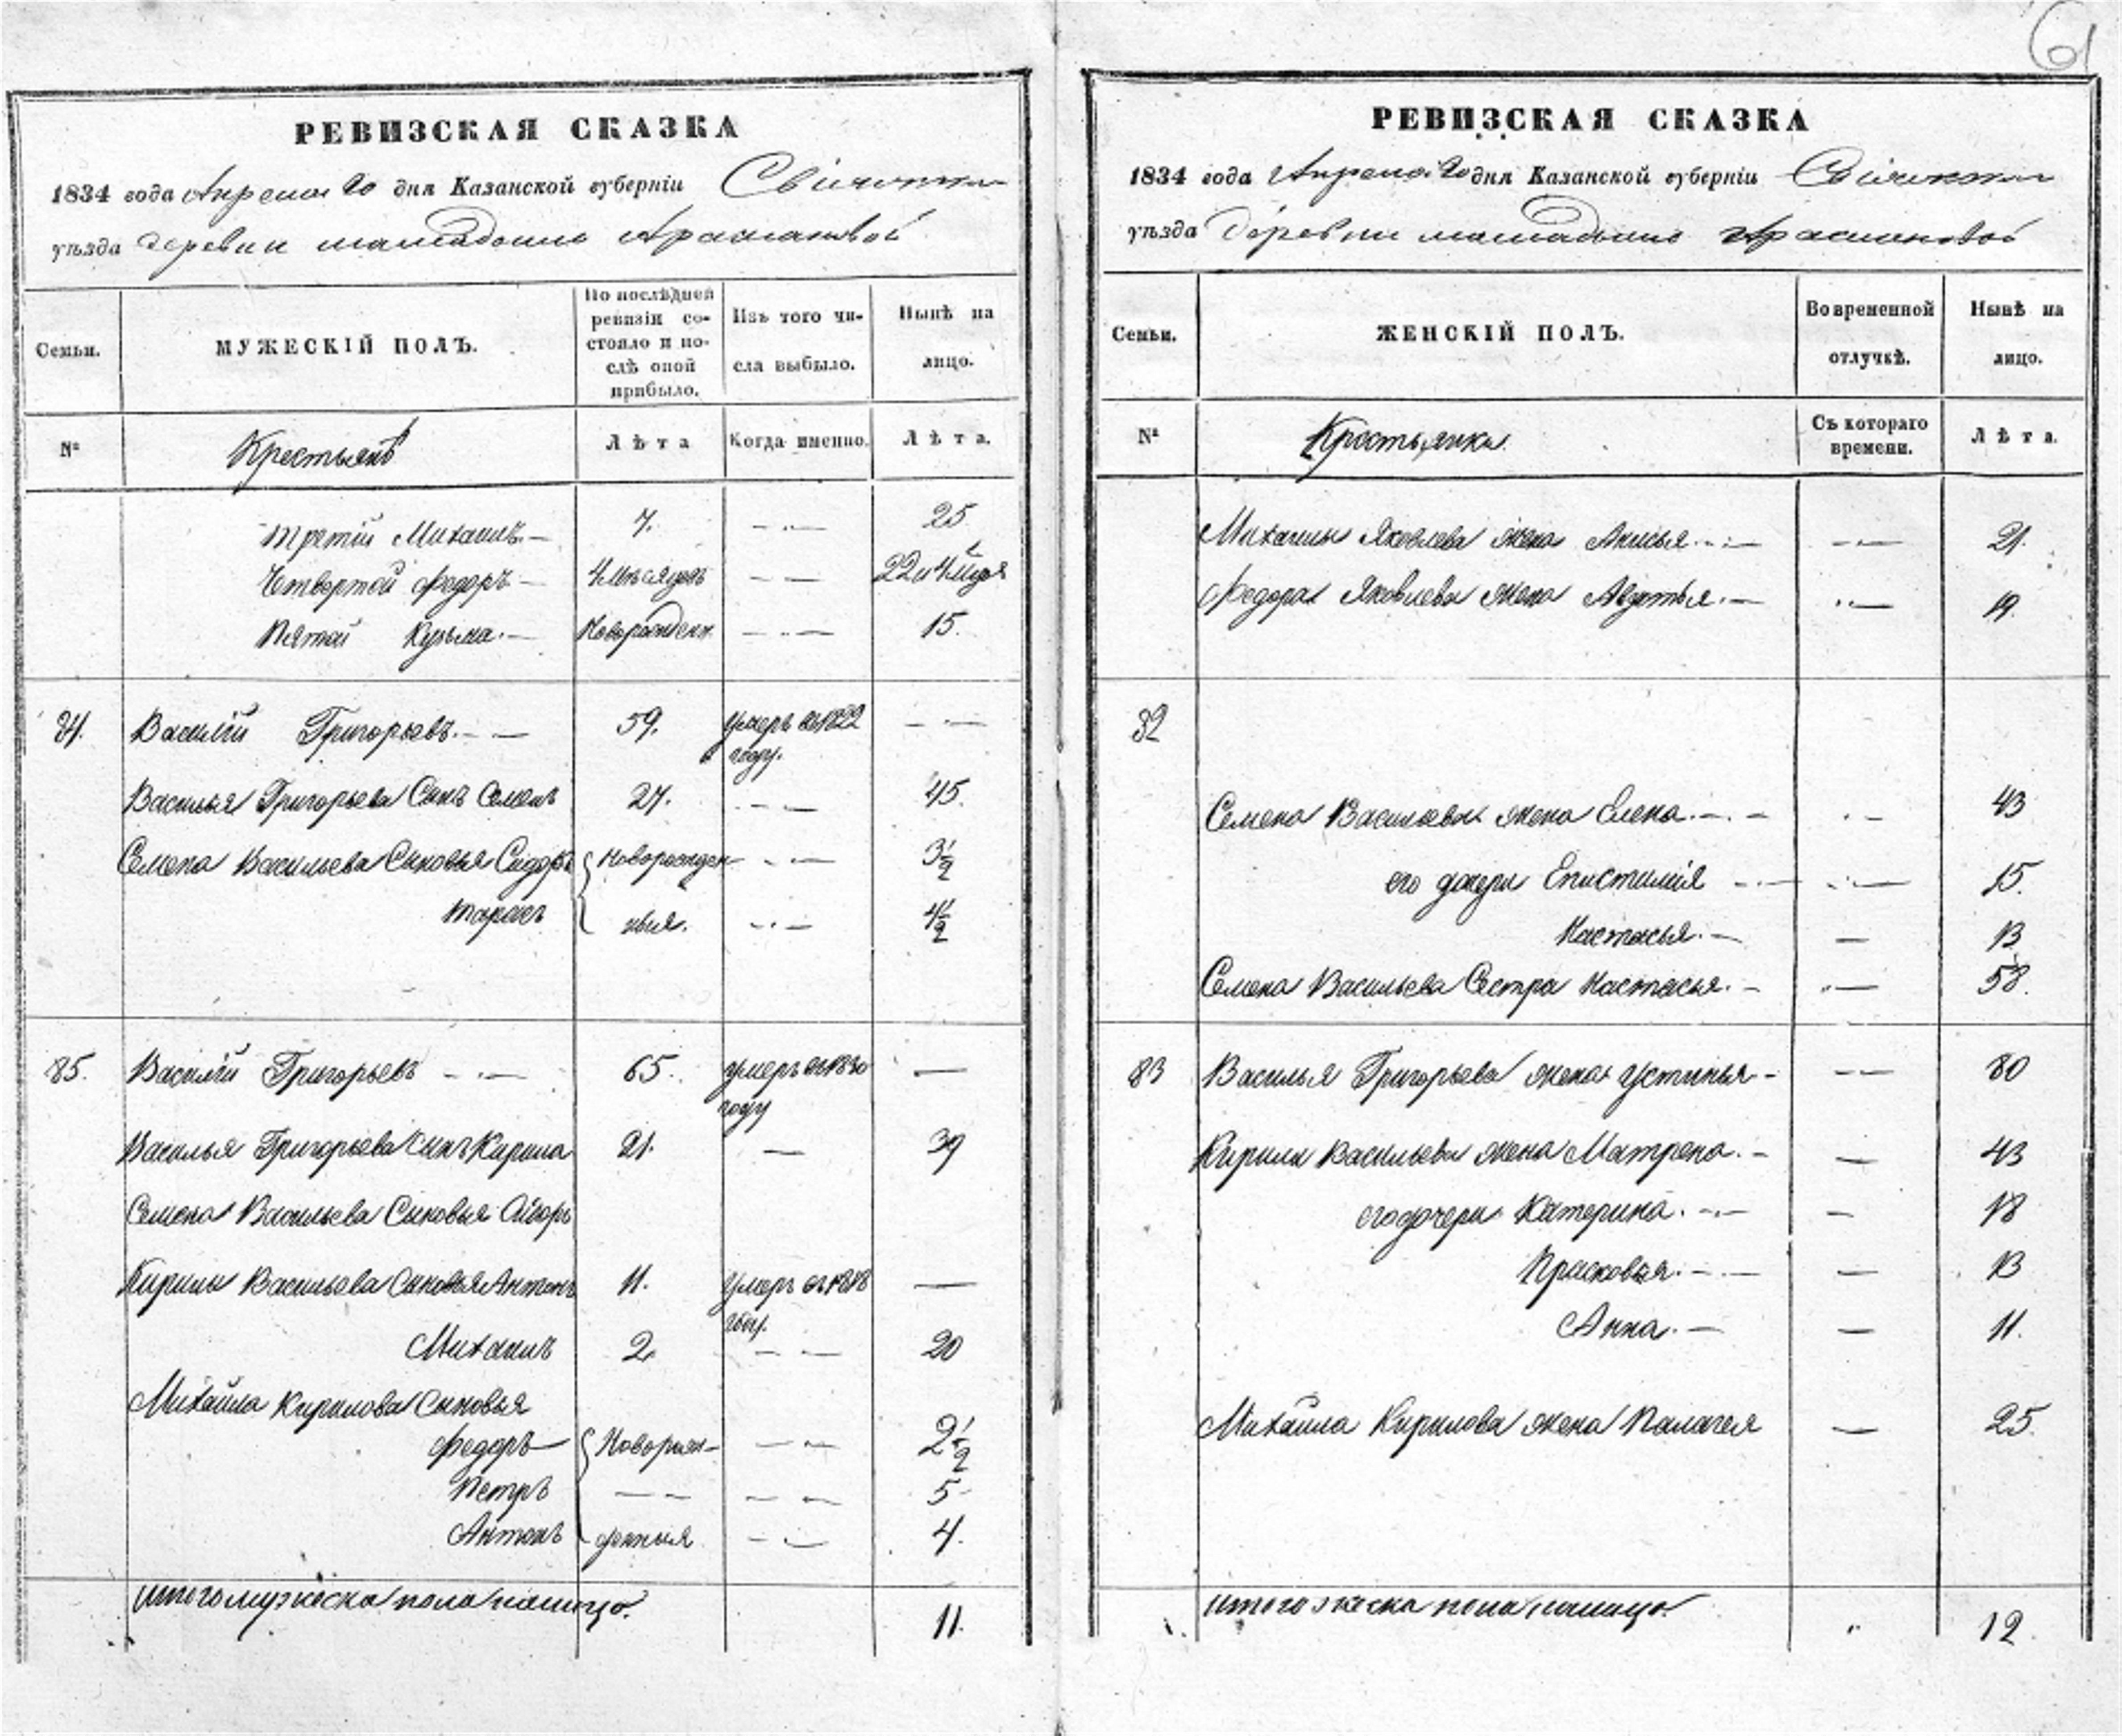 61
РЕВИЗСКАЯ СКАЗКА
1834 года Апреля 20 дня Казанской губерніи
уѣзда деревни
Семьи.
МУЖЕСКІЙ ПОЛЪ.
По послѣдней ревизіи состояло и послѣ оной прибыло.
Изъ того числа выбыло.
Нынѣ на лицо.
№
Крестьянъ
Лѣта
Когда именно.
Лѣта.
третій Михаилъ 7. 25
Четвертой Федоръ 4 мѣсяцовъ 22 и 4 мѣця
Пятой Кузьма Новорожден. 15.
Василій Григорьевъ 59. умеръ въ 1822 году.
Василья Григорьева Сынъ Семенъ 27. 45.
Семена Васильева Сыновья Сидоръ Новорожден 3 1/2
Тарасъ ныя. 4 1/2
85. Василій Григорьевъ 65. умеръ въ 1830 году —
Василья Григорьева Сынъ Кирила 21. — 39
Семена Васильева Сыновья
Кирилы Васильева Сыновья Антонъ 11. умеръ въ 1818 году. —
Михаилъ 2. 20
Михайла Кирилова Сыновья
Федоръ Новорож- 2 1/2
Петръ 5
Антонъ денныя 4.
итого мужеска пола налицо. 11.
РЕВИЗСКАЯ СКАЗКА
1834 года Апреля 20 дня Казанской губерніи
уѣзда деревни
Семьи.
ЖЕНСКІЙ ПОЛЪ.
Во временной отлучкѣ.
Нынѣ на лицо.
№
Крестьянки
Съ котораго времени.
Лѣта.
Михаилы Яковлева жена Анисья 21.
Федора Яковлева жена Авдотья 19.
82
Семена Васильева жена Елена 43
его дочери Епистимія 15.
Настасья. — 13
Семена Васильева Сестра Настасья. 58.
83 Василья Григорьева жена Устинья 80
Кирилы Васильева жена Матрена. — 43
его дочери Катерина. — 18
Прасковья. — 13
Анна. — 11.
Михайла Кирилова жена Палагея — 25.
итого женска пола налицо. 12